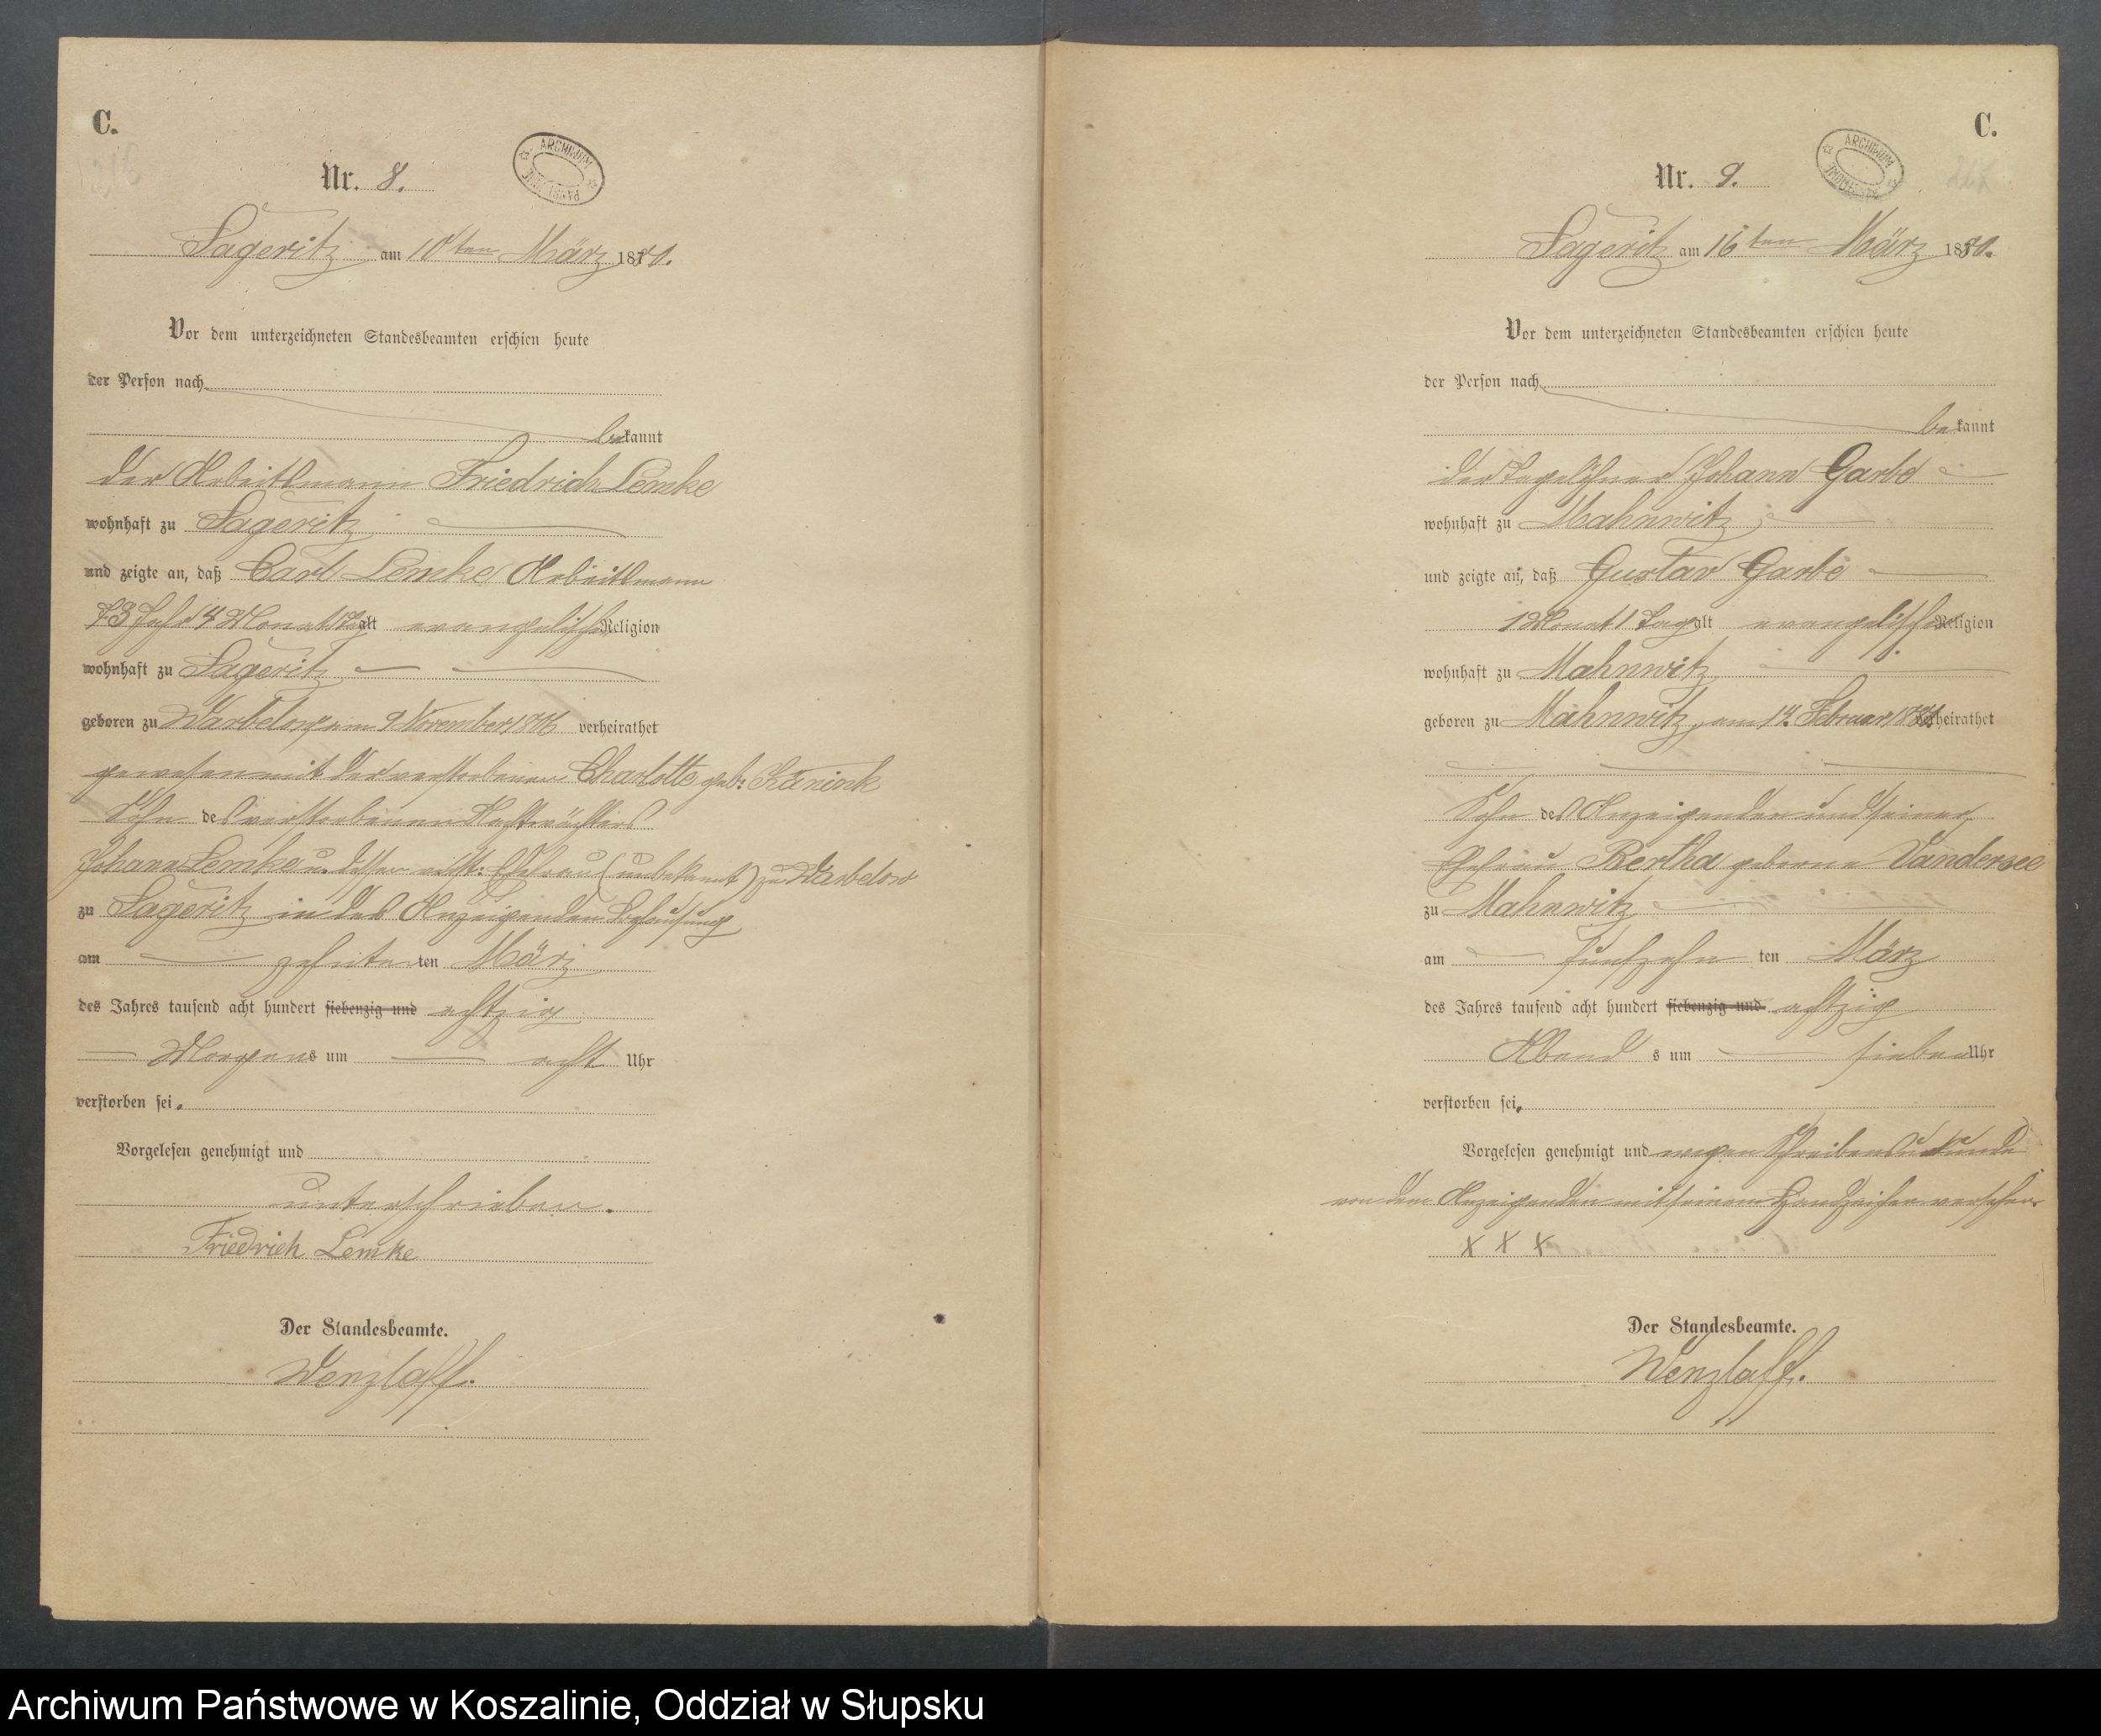 C.
Nr. 8.
ARCHIWUM PAŃSTWOWE
Sageritz am 10ten März 1880.
Vor dem unterzeichneten Standesbeamten erschien heute
der Person nach
bekannt
der Arbeitsmann Friedrich Lemke
wohnhaft zu Sageritz
und zeigte an, daß Carl Lemke Arbeitsmann
73 Jahr 4 Monat 1 Tag alt evangelischer Religion
wohnhaft zu Sageritz
geboren zu Warbelow am 9 November 1806 verheirathet
gewesen mit der verstorbenen Charlotte geb:
Sohn des verstorbenen Nachtwächters
Johann Lemke u. dessen verst: Ehefrau (unbekannt) zu Warbelow
zu Sageritz in des Anzeigenden Behausung
am zehnten ten März
des Jahres tausend acht hundert siebenzig und achtzig
Morgens um acht Uhr
verstorben sei.
Vorgelesen genehmigt und
unterschrieben.
Friedrich Lemke
Der Standesbeamte.
Wenzlaff.
C.
Nr. 9.
ARCHIWUM PAŃSTWOWE
Sageritz am 16ten März 1880.
Vor dem unterzeichneten Standesbeamten erschien heute
der Person nach
bekannt
der Tagelöhner Johann Garbe
wohnhaft zu Mahnwitz
und zeigte an, daß Gustav Garbe
1 Monat 1 Tag alt evangelischer Religion
wohnhaft zu Mahnwitz
geboren zu Mahnwitz, am 14. Februar 1880 verheirathet
Sohn des Anzeigenden und seiner
Ehefrau Bertha geborne Vandersee
zu Mahnwitz
am fünfzehn ten März
des Jahres tausend acht hundert siebenzig und achtzig
Abend s um sieben Uhr
verstorben sei.
Vorgelesen genehmigt und wegen Schreibensunkunde
von dem Anzeigenden mit seinem Handzeichen versehen.
X X X
Der Standesbeamte.
Wenzlaff.
Archiwum Państwowe w Koszalinie, Oddział w Słupsku